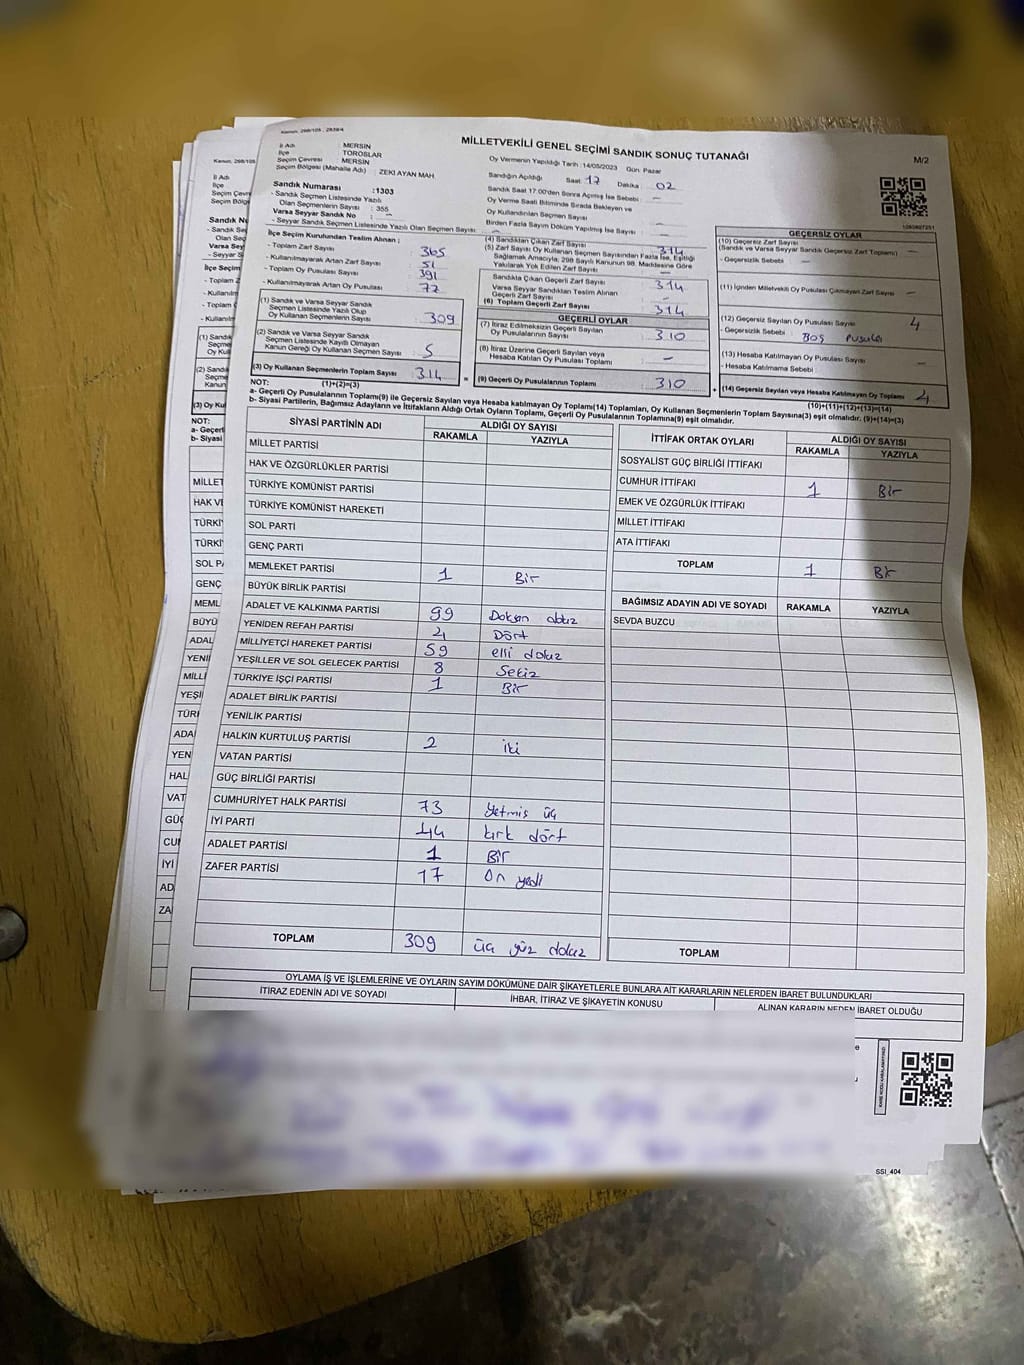 Kanun, 298/105 , 2839/4
MİLLETVEKİLİ GENEL SEÇİMİ SANDIK SONUÇ TUTANAĞI
M/2
İl Adı : MERSİN
İlçe : TOROSLAR
Seçim Çevresi : MERSİN
Seçim Bölgesi (Mahalle Adı) : ZEKİ AYAN MAH
Sandık Numarası :1303
- Sandık Seçmen Listesinde Yazılı
Olan Seçmenlerin Sayısı : 355
Varsa Seyyar Sandık No : —
- Seyyar Sandık Seçmen Listesinde Yazılı Olan Seçmen Sayısı : —
Oy Vermenin Yapıldığı Tarih :14/05/2023 Gün: Pazar
Sandığın Açıldığı Saat: 17 Dakika : 02
Sandık Saat 17:00'den Sonra Açılmış İse Sebebi : —
Oy Verme Saati Bitiminde Sırada Bekleyen ve
Oy Kullandırılan Seçmen Sayısı : —
Birden Fazla Sayım Döküm Yapılmış İse Sayısı : —
İlçe Seçim Kurulundan Teslim Alınan ;
- Toplam Zarf Sayısı : 365
- Kullanılmayarak Artan Zarf Sayısı : 51
- Toplam Oy Pusulası Sayısı : 391
- Kullanılmayarak Artan Oy Pusulası : 77
(1) Sandık ve Varsa Seyyar Sandık
Seçmen Listesinde Yazılı Olup
Oy Kullanan Seçmenlerin Sayısı : 309
(2) Sandık ve Varsa Seyyar Sandık
Seçmen Listesinde Kaydı Olmayan
Kanun Gereği Oy Kullanan Seçmen Sayısı : 5
(3) Oy Kullanan Seçmenlerin Toplam Sayısı : 314
(1)+(2)=(3)
(4) Sandıktan Çıkan Zarf Sayısı : 314
(5) Zarf Sayısı Oy Kullanan Seçmen Sayısından Fazla İse, Eşitliği
Sağlamak Amacıyla; 298 Sayılı Kanunun 98. Maddesine Göre
Yakılarak Yok Edilen Zarf Sayısı : —
Sandıkta Çıkan Geçerli Zarf Sayısı : 314
Varsa Seyyar Sandıktan Teslim Alınan
Geçerli Zarf Sayısı : —
(6) Toplam Geçerli Zarf Sayısı : 314
GEÇERLİ OYLAR
(7) İtiraz Edilmeksizin Geçerli Sayılan
Oy Pusulalarının Sayısı : 310
(8) İtiraz Üzerine Geçerli Sayılan veya
Hesaba Katılan Oy Pusulası Toplamı : —
(9) Geçerli Oy Pusulalarının Toplamı : 310
GEÇERSİZ OYLAR
(10) Geçersiz Zarf Sayısı
(Sandık ve Varsa Seyyar Sandık Geçersiz Zarf Toplamı) : —
- Geçersizlik Sebebi : —
(11) İçinden Milletvekili Oy Pusulası Çıkmayan Zarf Sayısı : —
(12) Geçersiz Sayılan Oy Pusulası Sayısı : 4
- Geçersizlik Sebebi : Boş pusula
(13) Hesaba Katılmayan Oy Pusulası Sayısı : —
- Hesaba Katılmama Sebebi :
(14) Geçersiz Sayılan veya Hesaba Katılmayan Oy Toplamı : 4
(10)+(11)+(12)+(13)=(14)
NOT:
a- Geçerli Oy Pusulalarının Toplamı(9) ile Geçersiz Sayılan veya Hesaba Katılmayan Oy Toplamı(14) Toplamları, Oy Kullanan Seçmenlerin Toplam Sayısına(3) eşit olmalıdır. (9)+(14)=(3)
b- Siyasi Partilerin, Bağımsız Adayların ve İttifakların Aldığı Ortak Oyların Toplamı, Geçerli Oy Pusulalarının Toplamına(9) eşit olmalıdır.
SİYASİ PARTİNİN ADI ALDIĞI OY SAYISI
RAKAMLA YAZIYLA
MİLLET PARTİSİ
HAK VE ÖZGÜRLÜKLER PARTİSİ
TÜRKİYE KOMÜNİST PARTİSİ
TÜRKİYE KOMÜNİST HAREKETİ
SOL PARTİ
GENÇ PARTİ
MEMLEKET PARTİSİ 1 Bir
BÜYÜK BİRLİK PARTİSİ
ADALET VE KALKINMA PARTİSİ 99 Doksan dokuz
YENİDEN REFAH PARTİSİ 4 Dört
MİLLİYETÇİ HAREKET PARTİSİ 59 elli dokuz
YEŞİLLER VE SOL GELECEK PARTİSİ 8 Sekiz
TÜRKİYE İŞÇİ PARTİSİ 1 Bir
ADALET BİRLİK PARTİSİ
YENİLİK PARTİSİ
HALKIN KURTULUŞ PARTİSİ 2 iki
VATAN PARTİSİ
GÜÇ BİRLİĞİ PARTİSİ
CUMHURİYET HALK PARTİSİ 73 Yetmiş üç
İYİ PARTİ 44 kırk dört
ADALET PARTİSİ 1 Bir
ZAFER PARTİSİ 17 On yedi
TOPLAM 309 üç yüz dokuz
İTTİFAK ORTAK OYLARI ALDIĞI OY SAYISI
RAKAMLA YAZIYLA
SOSYALİST GÜÇ BİRLİĞİ İTTİFAKI
CUMHUR İTTİFAKI 1 Bir
EMEK VE ÖZGÜRLÜK İTTİFAKI
MİLLET İTTİFAKI
ATA İTTİFAKI
TOPLAM 1 Bir
BAĞIMSIZ ADAYIN ADI VE SOYADI RAKAMLA YAZIYLA
SEVDA BUZCU
TOPLAM
OYLAMA İŞ VE İŞLEMLERİNE VE OYLARIN SAYIM DÖKÜMÜNE DAİR ŞİKAYETLERLE BUNLARA AİT KARARLARIN NELERDEN İBARET BULUNDUKLARI
İTİRAZ EDENİN ADI VE SOYADI İHBAR, İTİRAZ VE ŞİKAYETİN KONUSU ALINAN KARARIN NEDEN İBARET OLDUĞU
SSI_404